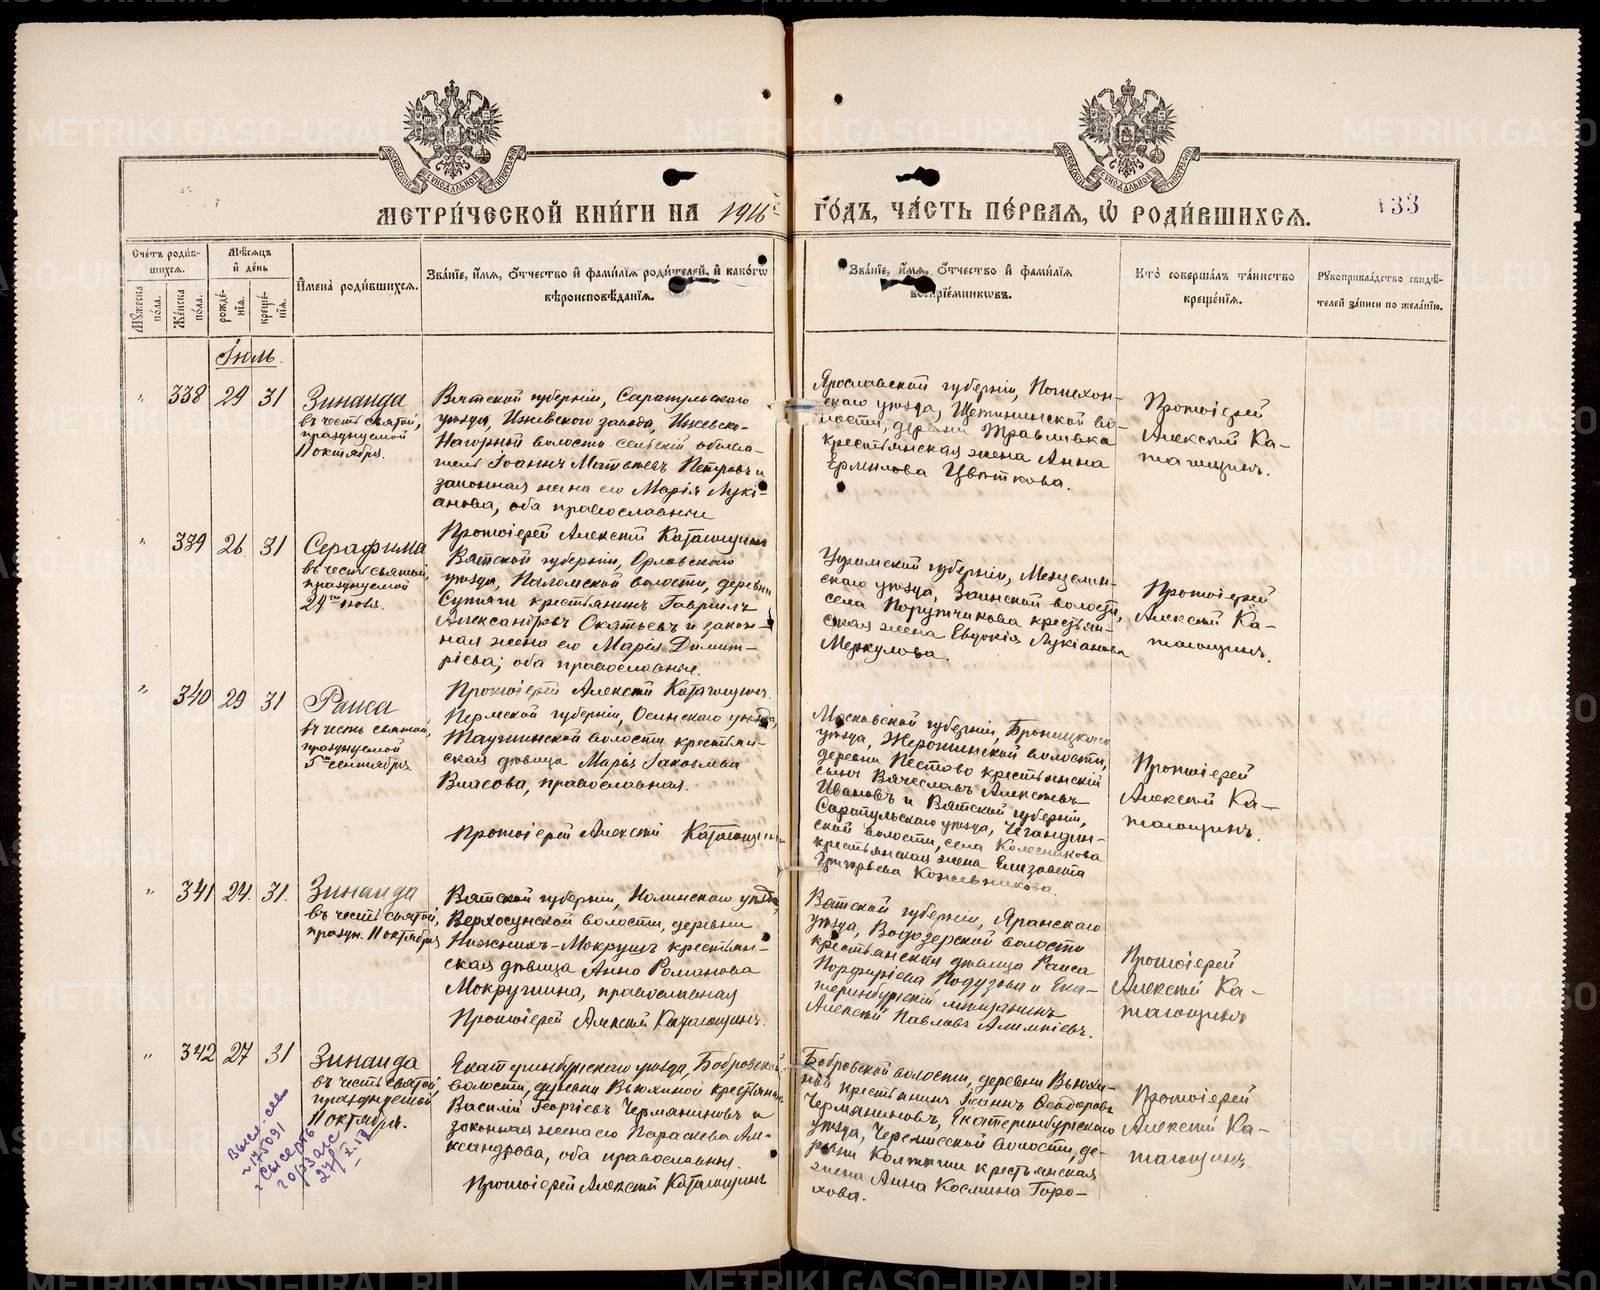 МЕТРИ́ЧЕСКОЙ КНИ́ГИ НА 1916й ГО́ДЪ, ЧА́СТЬ ПЕ́РВАЯ, Ѡ РОДИ́ВШИХСЯ.
133
Сче́тъ роди́в-
шихся.
Мѣ́сяцъ
и҆ де́нь
Мꙋ́жеска по́ла.
Же́нска по́ла.
рожде́-
нїѧ.
креще́-
нїѧ.
И҆мена̀ роди́вшихсѧ.
Зва́нїе, и҆́мѧ, ѻ҆́тчество и҆ фами́лїѧ роди́телей, и҆ како́гѡ
вѣроисповѣ́данїѧ.
Зва́нїе, и҆́мѧ, ѻ҆́тчество и҆ фами́лїѧ
воспрїе́мникѡвъ.
Кто̀ соверша́лъ та́инство
креще́нїѧ.
Рꙋкоприкла́дство свидѣ́-
телей за́писи по жела́нїю.
Іюль.
" 338 24 31
Зинаида
въ честь святой,
празднуемой
11 октября.
Вятской губерніи, Сарапульскаго
уѣзда, Ижевскаго завода, Ижевско-
Нагорный волости сельскій обыва-
тель Іоаннъ Матвѣевъ Петровъ и
законная жена его Марія Лукі-
анова, оба православные
Протоіерей Алексій Каташинъ
Ярославской губерніи, Пошехон-
скаго уѣзда, Щетининской во-
лости, деревни Травливка
крестьянская жена Анна
Ермилова Цвѣткова.
Протоіерей
Алексій Ка-
ташинъ.
" 339 26 31
Серафима
въ честь святой,
празднуемой
29го нояб.
Вятской губерніи, Орловскаго
уѣзда, Паломской волости, деревни
Сутяги крестьянинъ Гавріилъ
Александровъ Окатьевъ и закон-
ная жена его Марія Димит-
ріева; оба православные.
Протоіерей Алексій Каташинъ.
Уфимской губерніи, Мензелин-
скаго уѣзда, Заинской волости,
села Поручикова крестьян-
ская жена Евдокія Лукіанова
Меркулова.
Протоіерей
Алексій Ка-
ташинъ.
" 340 29 31
Раиса
въ честь святой,
празднуемой
5го сентября
Пермской губерніи, Осинскаго уѣзда,
крестьян-
ская дѣвица Марія Іаковлева
Власова, православная.
Протоіерей Алексій Каташинъ
Московской губерніи, Бронницкаго
уѣзда, волости,
деревни Пестово крестьянскій
сынъ Вячеславъ Алексѣевъ
Ивановъ и Вятской губерніи,
Сарапульскаго уѣзда, Чегандин-
ской волости, села Колесникова
крестьянская жена Елизавета
Григорьева Кожевникова.
Протоіерей
Алексій Ка-
ташинъ.
" 341 24. 31.
Зинаида
въ честь святой,
праздн. 11 октября
Вятской губерніи, Нолинскаго уѣзда,
Верхосунской волости, деревни
Нижнихъ-Мокрушъ крестьян-
ская дѣвица Анна Романова
Мокрушина, православная
Протоіерей Алексій Каташинъ.
Вятской губерніи, Яранскаго
уѣзда, Водозерской волости
крестьянская дѣвица Раиса
Порфиріева Подузова и Ека-
теринбургскій мѣщанинъ
Алексій Павловъ Алимпіевъ.
Протоіерей
Алексій Ка-
ташинъ
" 342 27 31
Зинаида
въ честь святой
празднуемой
11 октября.
Екатеринбургскаго уѣзда, Бобровской
волости, деревни Вьюхиной крестьянинъ
Василій Георгіевъ Чермяниновъ и
законная жена его Параскева Але-
ксандрова, оба православные.
Протоіерей Алексій Каташинъ
Бобровской волости, деревни Вьюхи-
ной крестьянинъ Іоаннъ Ѳеодоровъ
Чермяниновъ, Екатеринбургскаго
уѣзда, Черемисской волости, де-
ревни Колташи крестьянская
жена Анна Косьмина Горо-
хова.
Протоіерей
Алексій Ка-
ташинъ.
Г. Сысерть
горзагс
METRIKI.GASO-URAL.RU